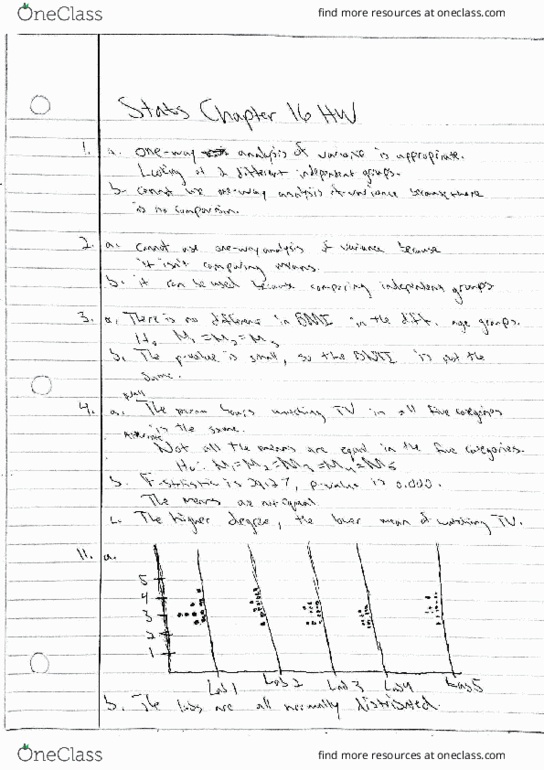 OneClass
find more resources at oneclass.com
Stats Chapter 16 HW
1. a. one-way analysis of variance is appropriate.
Looking at 2 different independent groups.
b. cannot use one-way analysis of variance because there
is no comparison.
2. a. cannot use one-way analysis of variance because
it isn't comparing means.
b. it can be used because comparing independent groups
3. a. There is no difference in BMI in the diff. age groups.
H₀ M₁ = M₂ = M₃
b. The p-value is small, so the BMI is not the
same.
4. a. The mean hours watching TV in all five categories
is the same.
Not all the means are equal in the five categories.
H₀: M₁=M₂=M₃=M₄=M₅
b. F-statistic is p-value is 0.000.
The means are not equal.
c. The higher degree, the lower mean of watching TV.
11. a.
5
4
3
2
1
Lab 1 Lab 2 Lab 3 Lab 4 Lab 5
b. The labs are all normally distributed.
OneClass
find more resources at oneclass.com